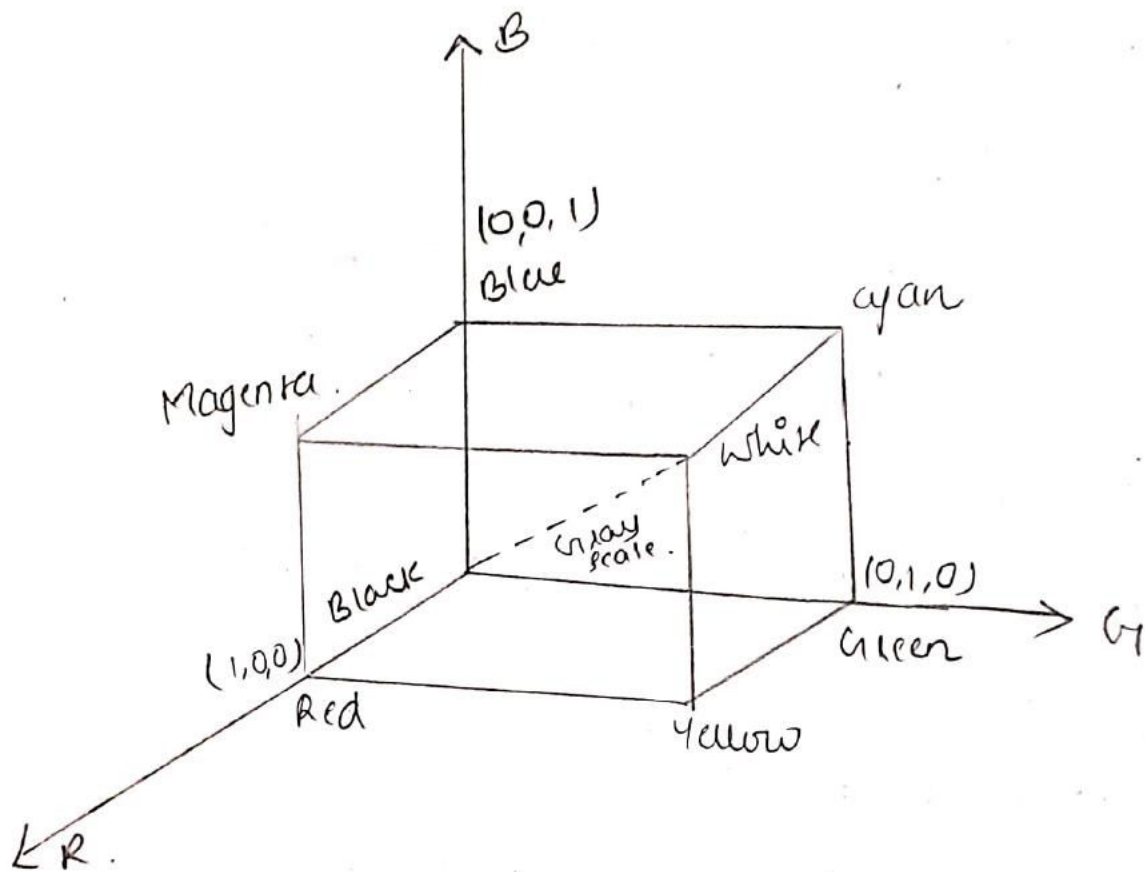 B
(0,0,1)
Blue
Cyan
Magenta.
White
Gray
scale.
Black
(0,1,0)
G
(1,0,0)
Green
Red
Yellow
R.